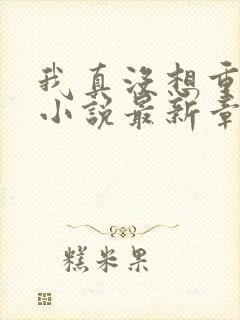 我真没想重
小说最新章
糕米果